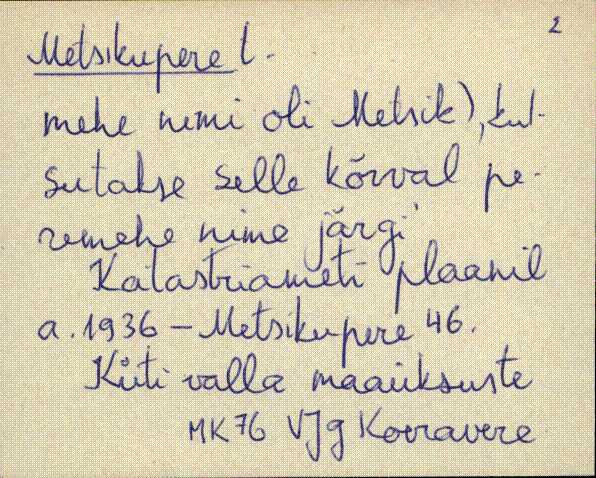 2
Metsikupere t.
mehe nimi oli Metsik), kut-
sutakse selle kõrval pe-
remehe nime järgi
Katastriameti plaanil
a. 1936 – Metsikupere 46.
Küti valla maaüksuste
MK 76 VJg Koeravere